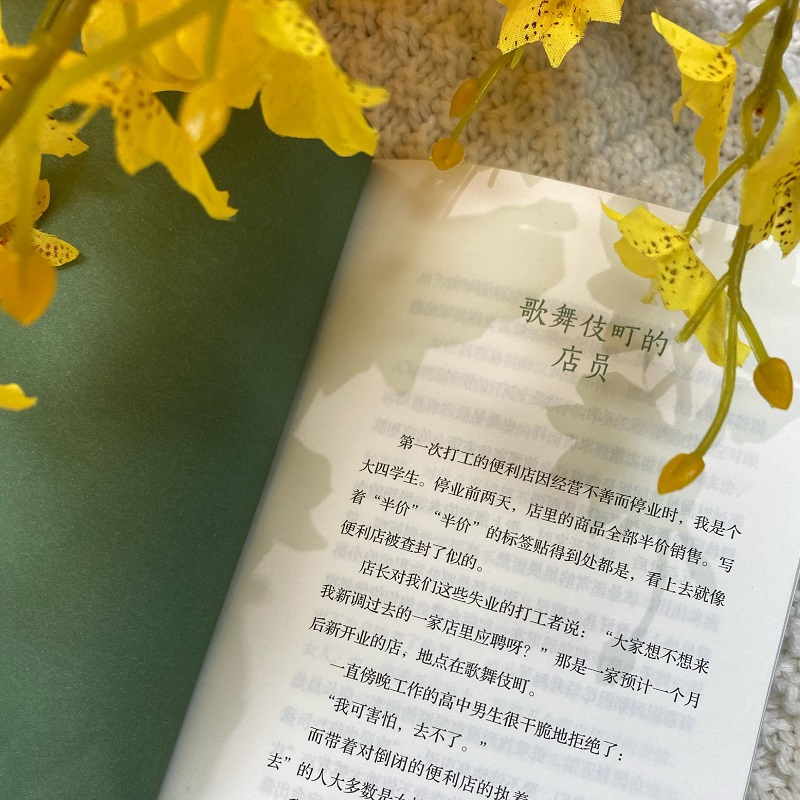 歌舞伎町的
店员
第一次打工的便利店因经营不善而停业时，我是个
大四学生。停业前两天，店里的商品全部半价销售。写
着“半价”“半价”的标签贴得到处都是，看上去就像
便利店被查封了似的。
店长对我们这些失业的打工者说：“大家想不想来
我新调过去的一家店里应聘呀？”那是一家预计一个月
后新开业的店，地点在歌舞伎町。
一直傍晚工作的高中男生很干脆地拒绝了：
“我可害怕，去不了。”
而带着对倒闭的便利店的执着
去”的人大多数是